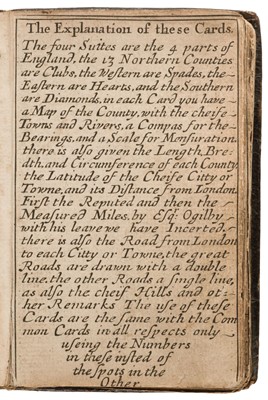 The Explanation of these Cards.
The four Suttes are the 4 parts of
England, the 13 Northern Counties
are Clubs, the Western are Spades, the
Eastern are Hearts, and the Southern
are Diamonds, in each Card you have
a Map of the County, with the cheife
Towns and Rivers, a Compas for the
Bearings, and a Scale for Mensuration
there is also given the Length, Bre
dth, and Circumference of each County
the Latitude of the Cheife Citty or
Towne, and its Distance from London.
First the Reputed and then the
Measured Miles, by Esq: Ogilby
with his leave we have Incerted,
there is also the Road from London
to each Citty or Towne, the great
Roads are drawn with a double
line, the other Roads a single line,
as also the cheif Hills and ot-
her Remarks The use of these
Cards are the same with the Com
mon Cards in all respects only
useing the Numbers
in these insted of
the spots in the
Other